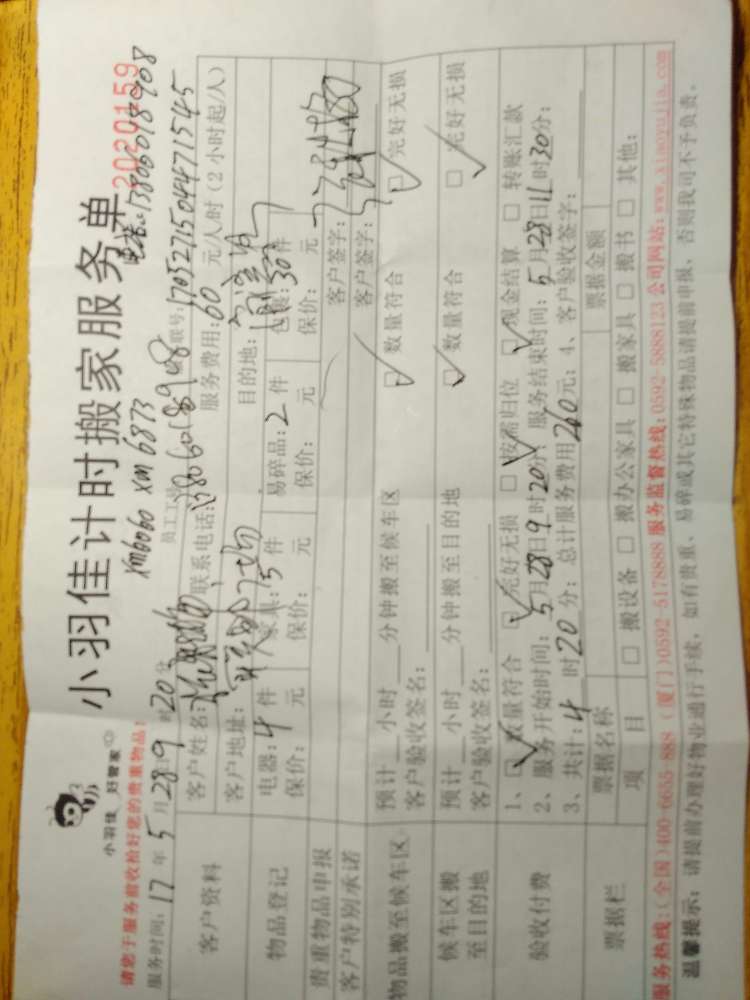 小羽佳 好管家
小羽佳计时搬家服务单
2020159
电话:13806018908
请您于服务前收拾好您的贵重物品!
xm6060 xm 6873
服务时间: 17 年 5 月 28 日 9 时 20 分 员工工号: 联号: 1705271504447 1545
客户资料
客户姓名: 联系电话: 13806018908 服务费用: 60 元/人/时 (2小时起/人)
客户地址: 目的地:
物品登记
电器: 4 件 家具: 5 件 易碎品: 2 件 包裹: 30 件
保价: 元 保价: 元 保价: 元 保价: 元
贵重物品申报 客户签字:
客户特别承诺 客户签字:
物品搬至候车区
预计 小时 分钟搬至候车区 ☑ 数量符合 ☑ 完好无损
客户验收签名:
候车区搬至目的地
预计 小时 分钟搬至目的地 ☑ 数量符合 ☑ 完好无损
客户验收签名:
验收付费
1、☑ 数量符合 ☑ 完好无损 ☑ 按需归位 ☑ 现金结算 □ 转账汇款
2、服务开始时间: 5 月 28 日 9 时 20 分; 服务结束时间: 5 月 28 日 11 时 30 分;
3、共计: 4 时 20 分; 总计服务费用 260 元; 4、客户验收签字:
票据栏
票据名称 票据金额
项目 □ 搬设备 □ 搬办公家具 □ 搬家具 □ 搬书 □ 其他:
服务热线:(全国)400-6655-888 (厦门)0592-5178888 服务监督热线:0592-5888123 公司网站:www.xiaoyujia.com
温馨提示: 请提前办理好物业通行手续, 如有贵重、易碎或其它特殊物品请提前申报, 否则我司不予负责。